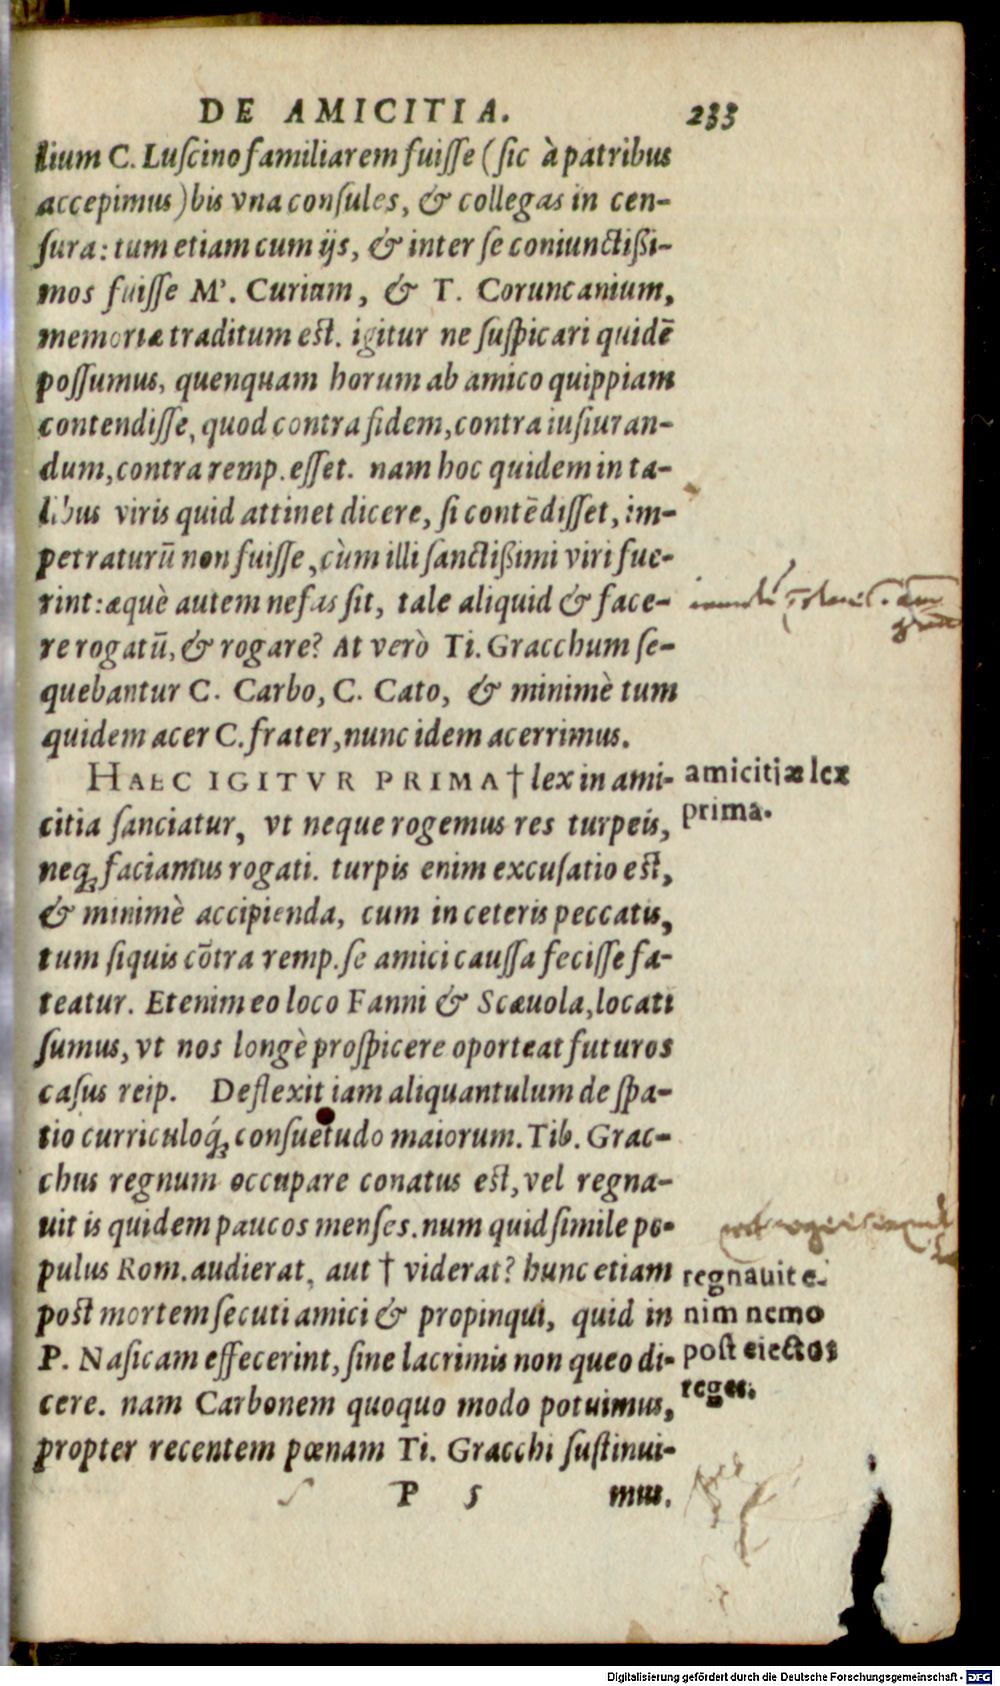 DE AMICITIA. 233
lium C. Luſcino familiarem fuiſſe (ſic à patribus
accepimus) bis vna conſules, & collegas in cen-
ſura: tum etiam cum ijs, & inter ſe coniunctißi-
mos fuiſſe M'. Curium, & T. Coruncanium,
memoriæ traditum est. igitur ne ſuſpicari quidē
poſſumus, quenquam horum ab amico quippiam
contendiſſe, quod contra fidem, contra iuſiuran-
dum, contra remp. eſſet. nam hoc quidem in ta-
libus viris quid attinet dicere, ſi contēdiſſet, im-
petraturū non fuiſſe, cùm illi ſanctißimi viri fue-
rint: æquè autem nefas ſit, tale aliquid & face-
re rogatū, & rogare? At verò Ti. Gracchum ſe-
quebantur C. Carbo, C. Cato, & minimè tum
quidem acer C. frater, nunc idem acerrimus.
HAEC IGITVR PRIMA † lex in ami-
citia ſanciatur, vt neque rogemus res turpeis,
neq; faciamus rogati. turpis enim excuſatio est,
& minimè accipienda, cum in ceteris peccatis,
tum ſiquis cōtra remp. ſe amici cauſſa feciſſe fa-
teatur. Etenim eo loco Fanni & Scæuola, locati
ſumus, vt nos longè proſpicere oporteat futuros
caſus reip. Deflexit iam aliquantulum de ſpa-
tio curriculoq́; conſuetudo maiorum. Tib. Grac-
chus regnum occupare conatus est, vel regna-
uit is quidem paucos menſes. num quid ſimile po-
pulus Rom. audierat, aut † viderat? hunc etiam
post mortem ſecuti amici & propinqui, quid in
P. Naſicam effecerint, ſine lacrimis non queo di-
cere. nam Carbonem quoquo modo potuimus,
propter recentem pœnam Ti. Gracchi ſuſtinui-
P 5 mus.
amicitiæ lex
prima.
regnauit e-
nim nemo
poſt eiectos
reges.
Digitalisierung gefördert durch die Deutsche Forschungsgemeinschaft - DFG